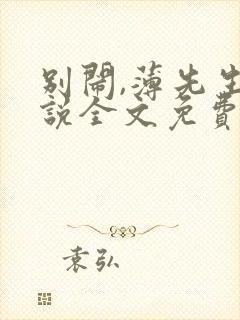 別鬧,薄先生
說全文免費
袁弘